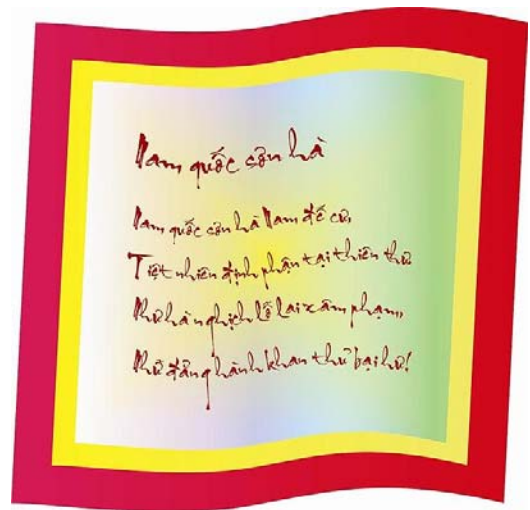 Nam quốc sơn hà
Nam quốc sơn hà Nam đế cư,
Tiệt nhiên định phận tại thiên thư
Như hà nghịch lỗ lai xâm phạm,
Nhữ đẳng hành khan thủ bại hư!